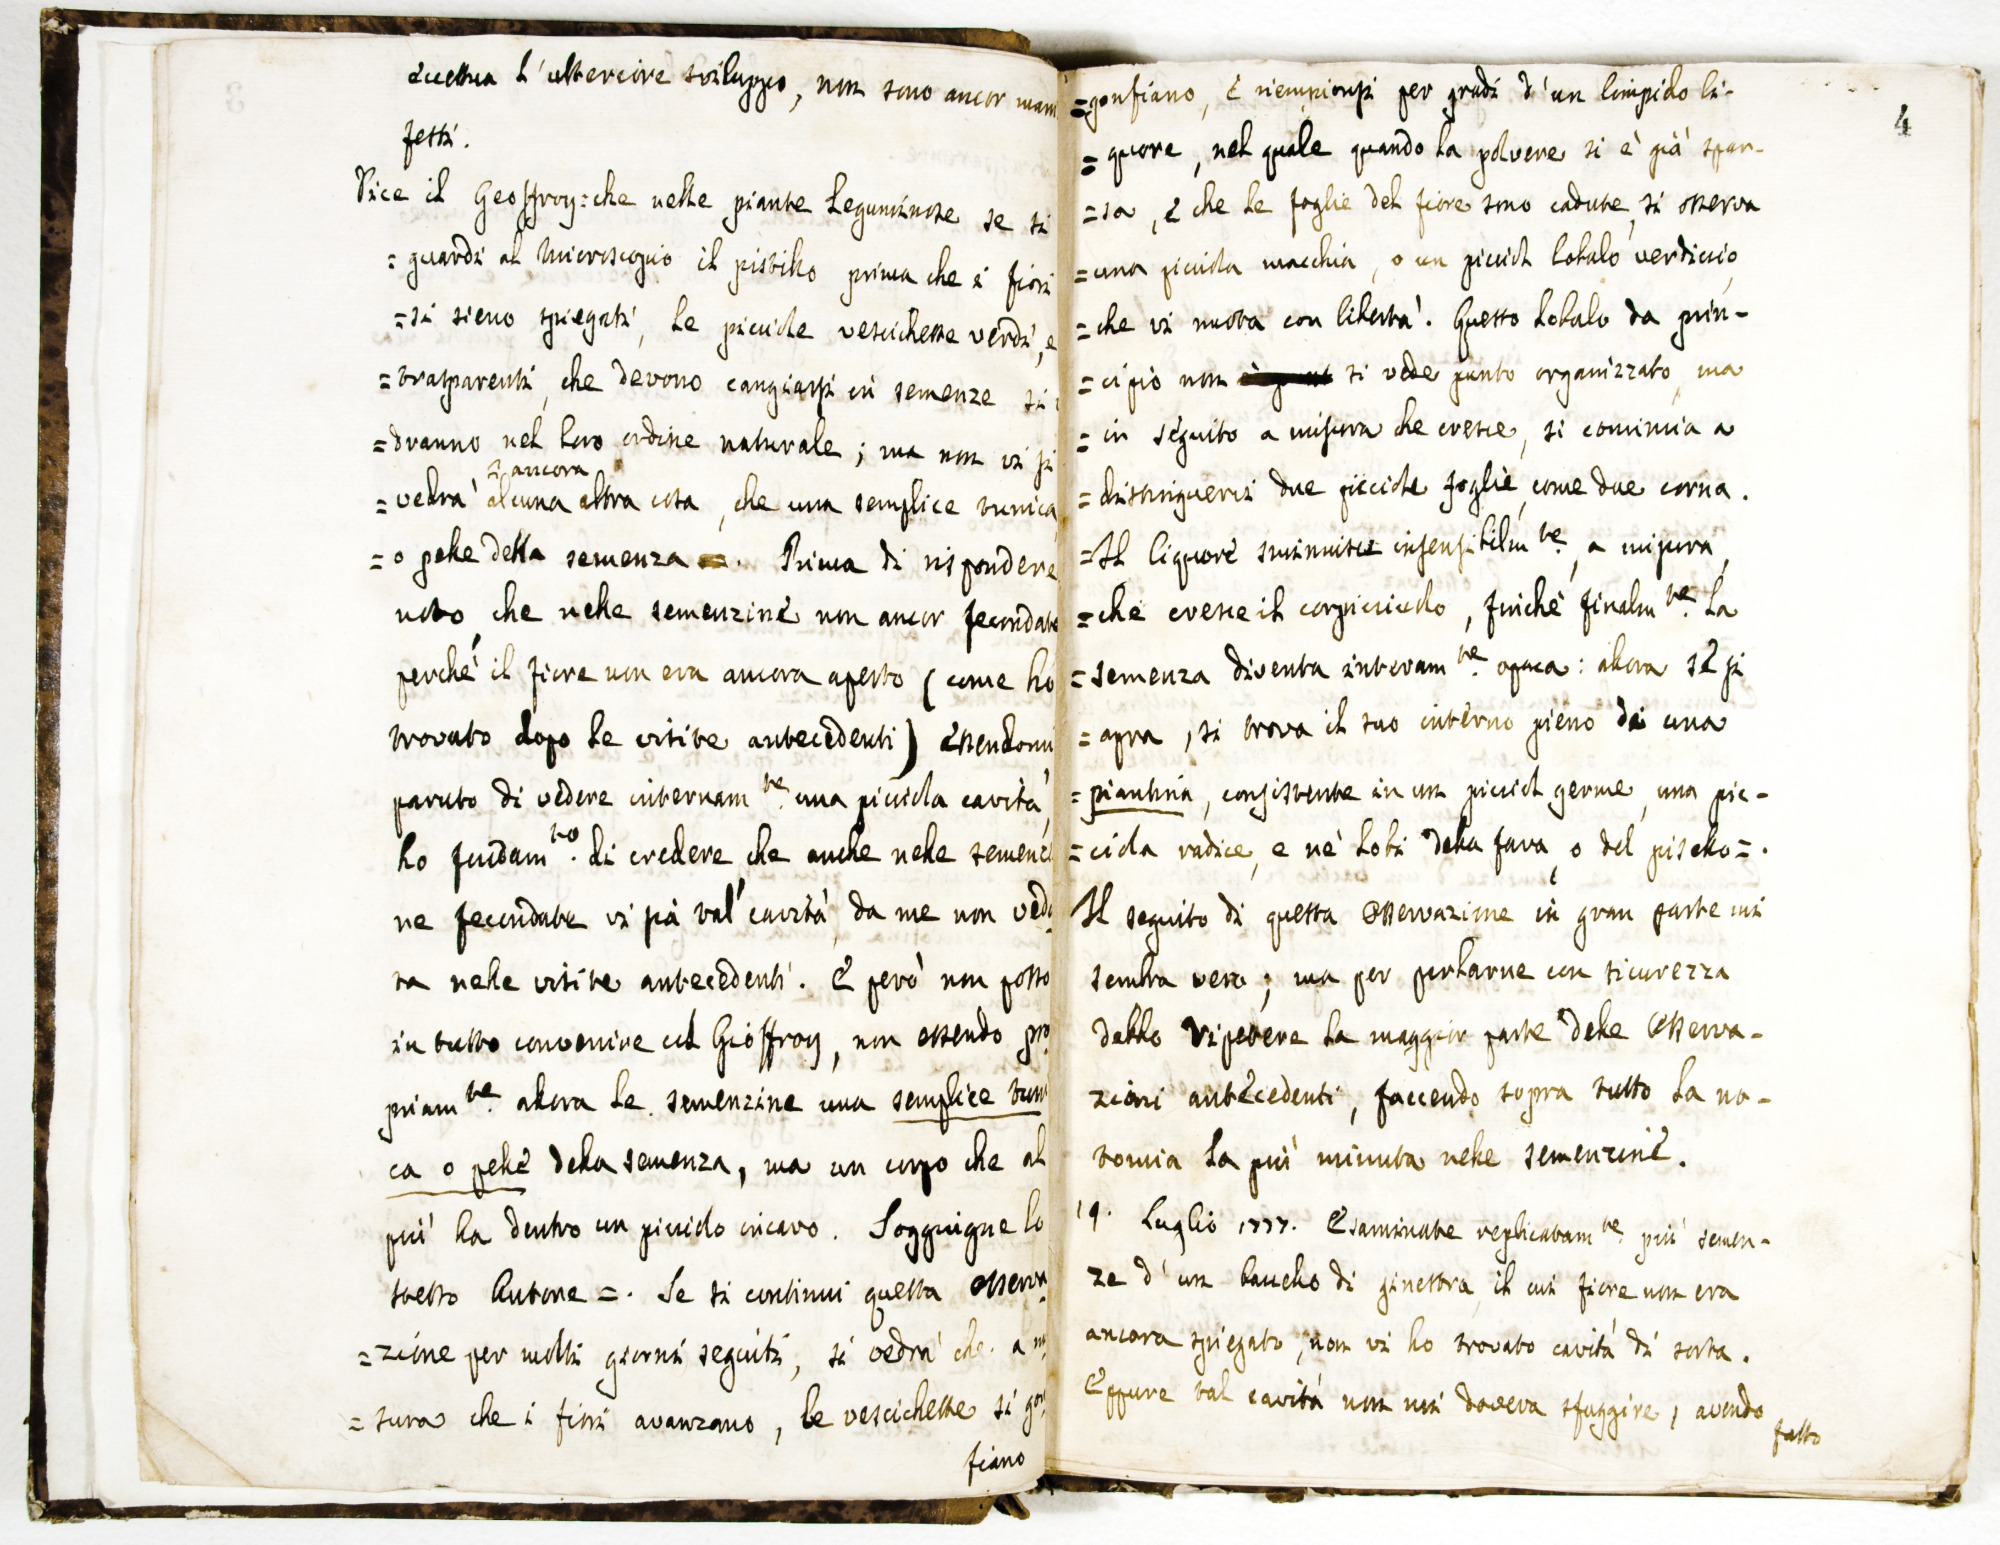 l'ulteriore sviluppo, non sono ancor mani
festi.
Dice il Geoffroy: che nelle piante leguminose se si
= guardi al Microscopio il pistillo prima che i fiori
= si sieno spiegati, le picciole vescichette verdi, e
= trasparenti, che devono cangiarsi in semenze si
= dranno nel loro ordine naturale; ma non vi si
ancora
= vedrà alcuna altra cosa, che una semplice tunica,
= o pelle della semenza =. Prima di rispondere
noto, che nelle semenzine non ancor fecondate
perché il fiore non era ancora aperto (come ho
trovato dopo le visite antecedenti) essendomi
paruto di vedere internamte. una picciola cavità,
ho fondamto. di credere che anche nelle semenzi
ne fecondate vi sia tal cavità, da me non vedu
ta nelle visite antecedenti. E però non posso
in tutto convenire col Geoffroy, non essendo pro
priamte. allora le semenzine una semplice tuni
ca o pelle della semenza, ma un corpo che al
più ha dentro un picciolo incavo. Soggiugne lo
stesso Autore =. Se si continui questa osserva
= zione per molti giorni seguiti, si vedrà che a mi
= sura che i fiori avanzano, le vescichette si gon
fiano
4
= gonfiano, e riempionsi per gradi d'un limpido li-
= quore, nel quale quando la polvere si è già spar-
= sa, e che le foglie del fiore sono cadute, si osserva
= una picciola macchia, o un picciol lobalo verdiccio,
= che vi nuota con libertà. Questo lobalo da prin-
= cipio non si vede punto organizzato, ma
= in seguito a misura che cresce, si comincia a
= distinguervi due picciole foglie, come due corna.
= Il liquore sminuisce insensibilmte., a misura,
= che cresce il corpicciuolo, finché finalmte. la
= semenza diventa interamte. opaca: allora se si
= apra, si trova il suo interno pieno di una
= piantina, consistente in un picciol germe, una pic-
= ciola radice, e ne' lobi della fava, o del pisello =.
Il seguito di questa Osservazione in gran parte mi
sembra vero; ma per parlarne con sicurezza
debbo ripetere la maggior parte delle Osserva-
zioni antecedenti, faccendo sopra tutto la no-
tomia la più minuta nelle semenzine.
19. Luglio 1777. Esaminate replicatamte. più semen-
ze d'un baccello di ginestra, il cui fiore non era
ancora spiegato, non vi ho trovato cavità di sorta.
Eppure tal cavità non mi doveva sfuggire, avendo
fatto